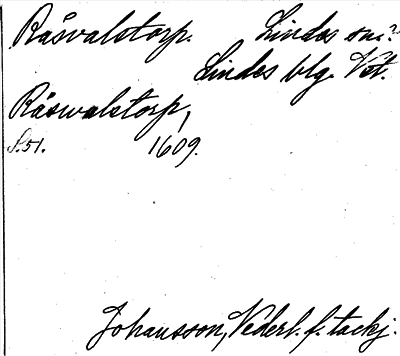 Råsvalstorp. Lindes sn.?
Lindes blg. Vst.
Råswalstorp,
S.51. 1609.
Johansson, Vederl. f. tackj.